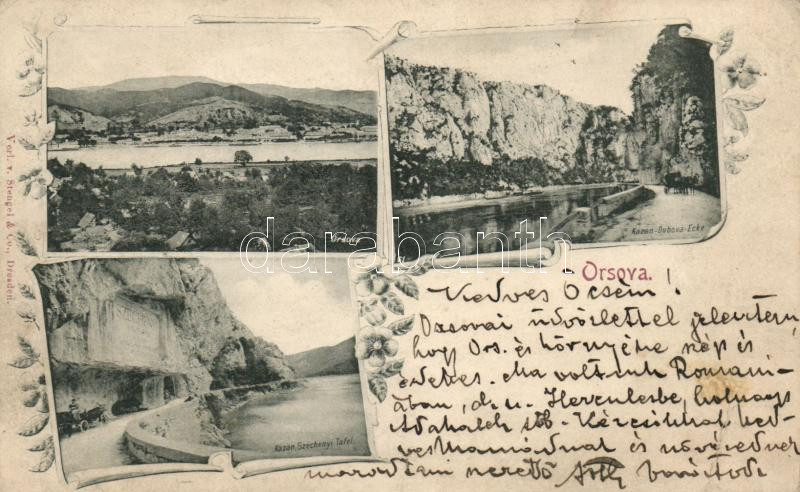 Verl. v. Stengel & Co., Dresden.
Orsova
Kazan-Dubova-Ecke
Kazan, Szechenyi Tafel.
darabanth.com
Orsova.
Kedves Öcsém!
Orsovai üdvözlettel jelentem,
hogy Ors. és környéke szép és
érdekes. Ma voltunk Romani-
ában, d. u. Herculesbe, holnap
Adahaleh stb. Kézcsókkal
és
maradtam szerető barátod